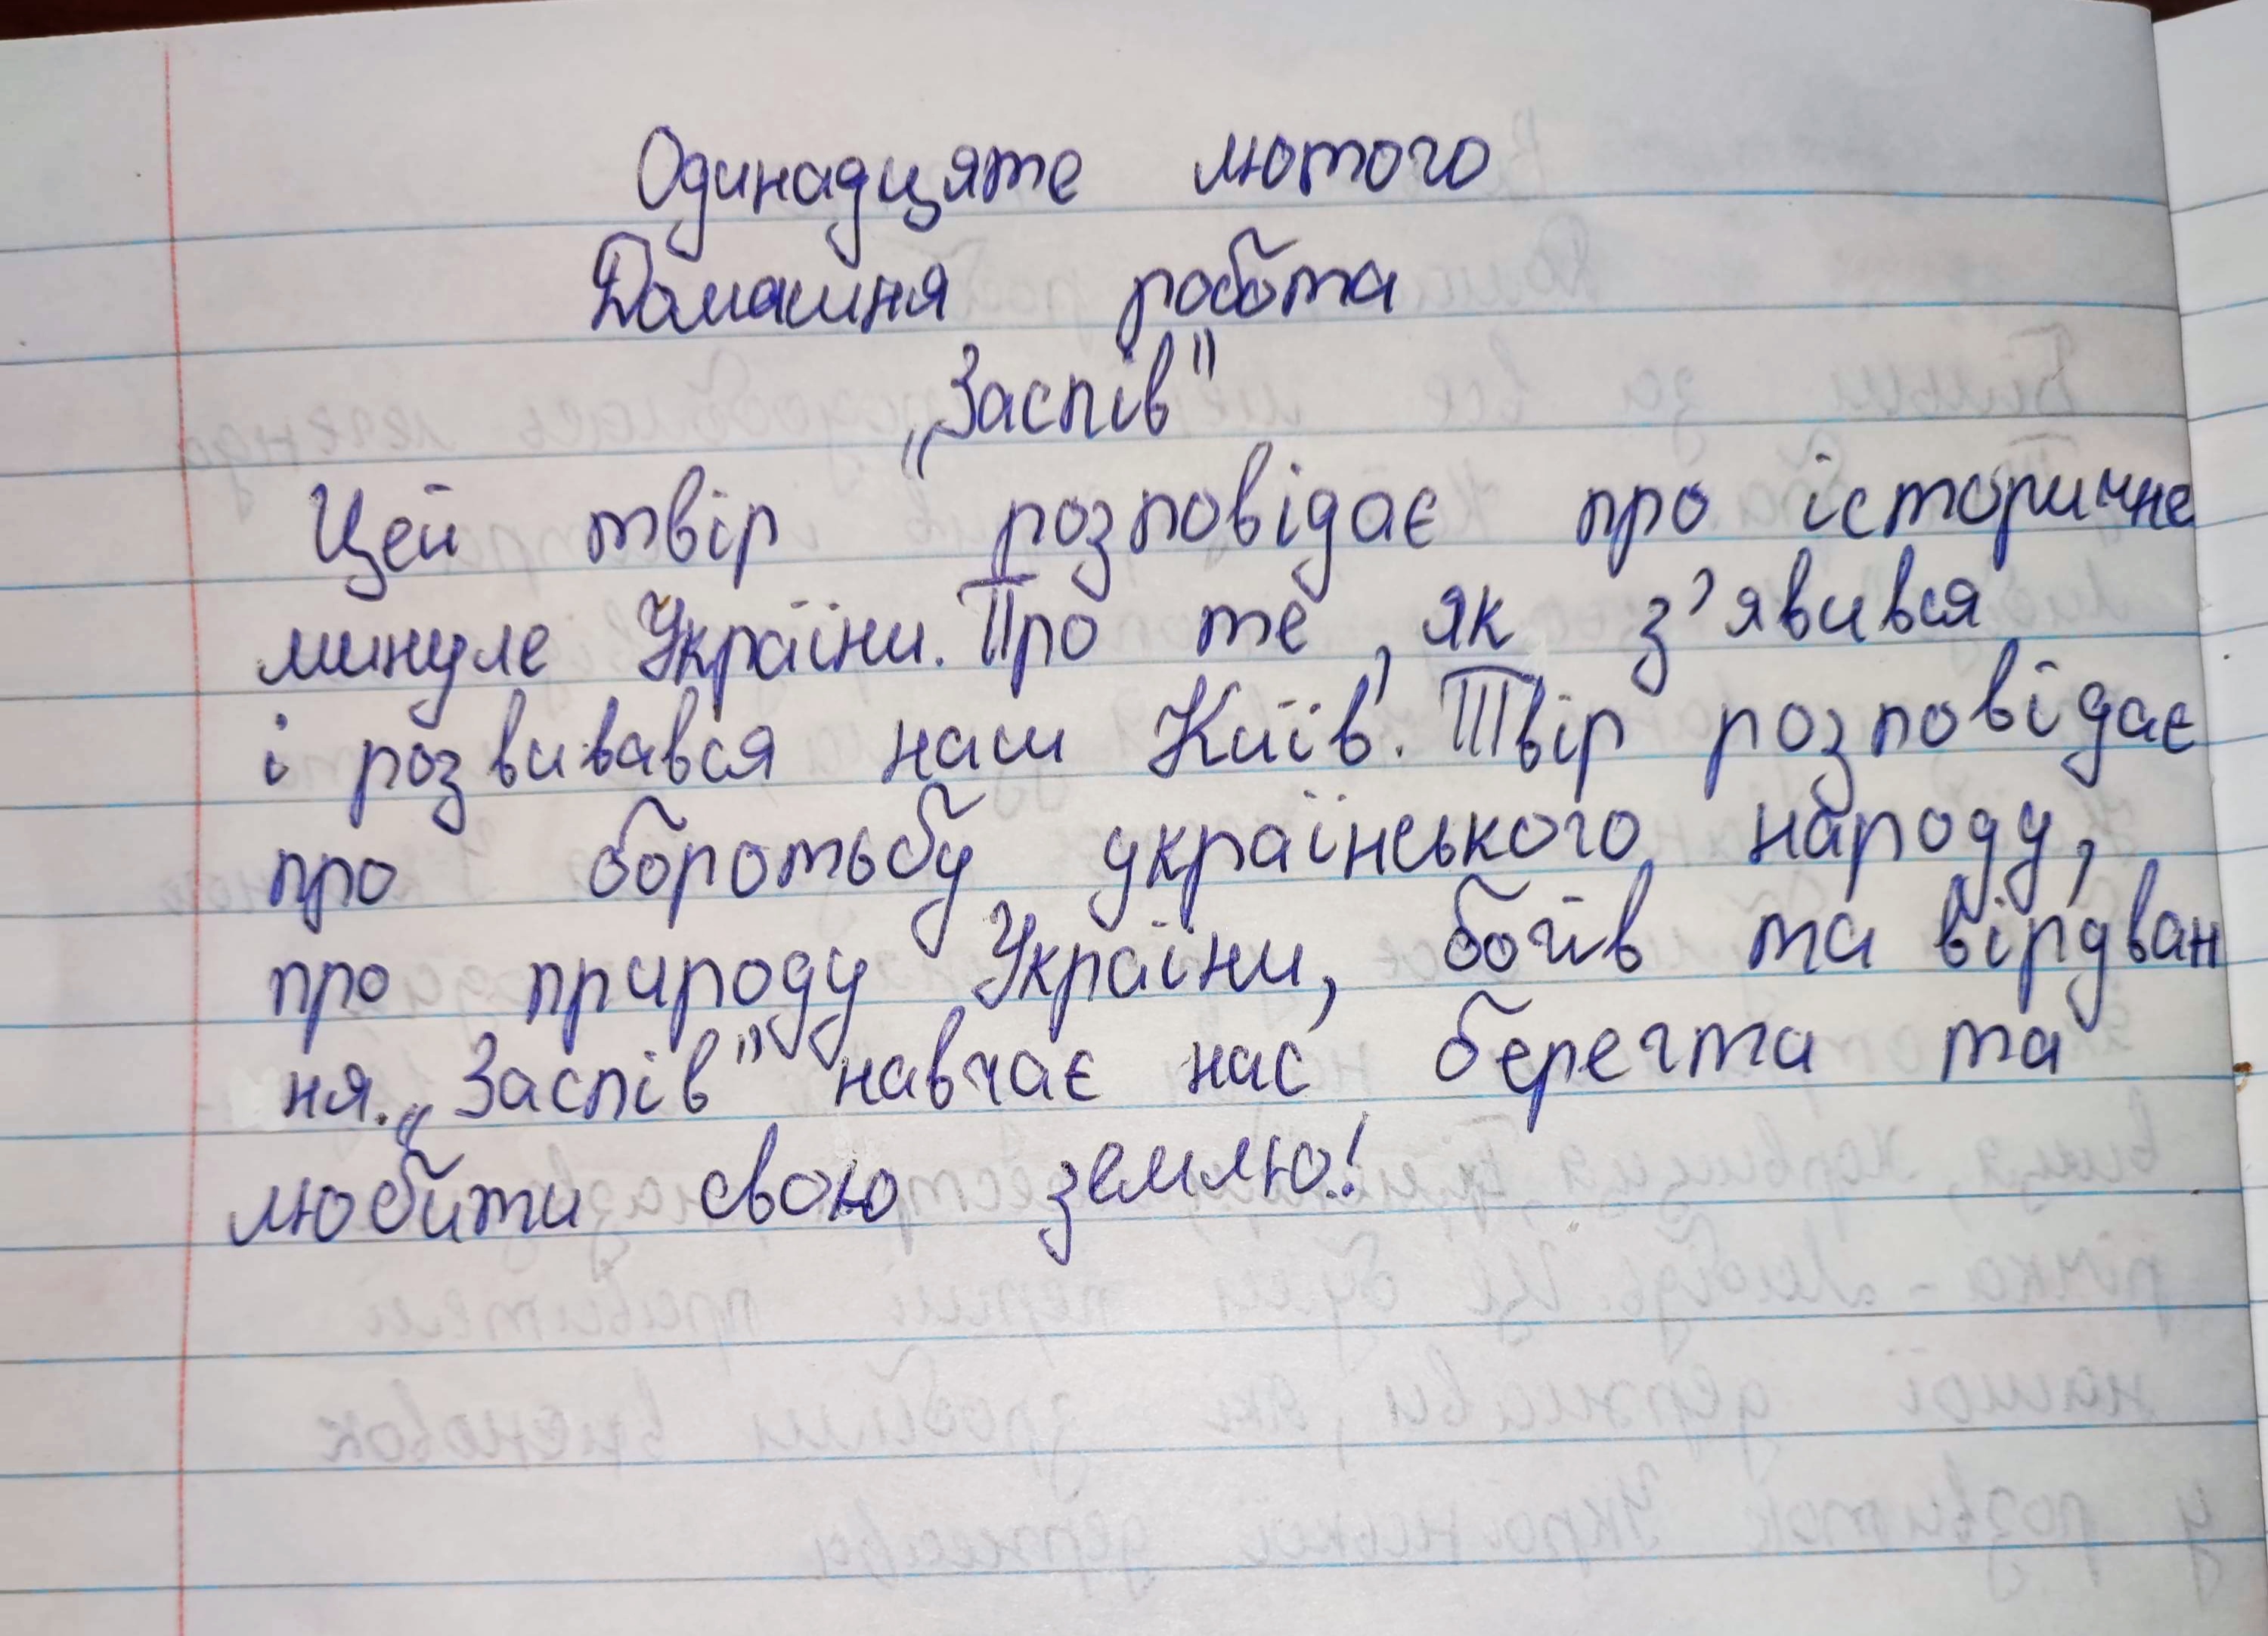 Одинадцяте лютого
Домашня робота
„Заспів"
Цей твір розповідає про історичне
минуле України. Про те, як з'явився
і розвивався наш Київ. Твір розповідає
про боротьбу українського народу,
про природу України, боїв та вірдван
ня. „Заспів" навчає нас берегта та
любити свою землю!